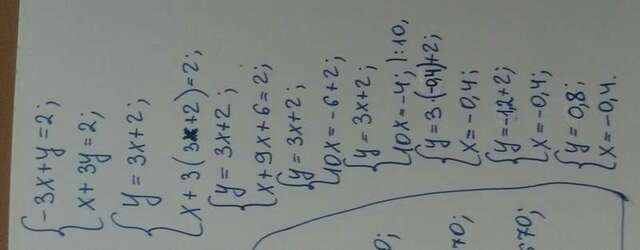 -3x+y=2;
x+3y=2;
y=3x+2;
x+3(3x+2)=2;
y=3x+2;
x+9x+6=2;
y=3x+2;
10x=-6+2;
y=3x+2;
10x=-4; ):10,
y=3·(-0,4)+2;
x=-0,4;
y=-1,2+2;
x=-0,4;
y=0,8;
x=-0,4.
0;
70;
70;